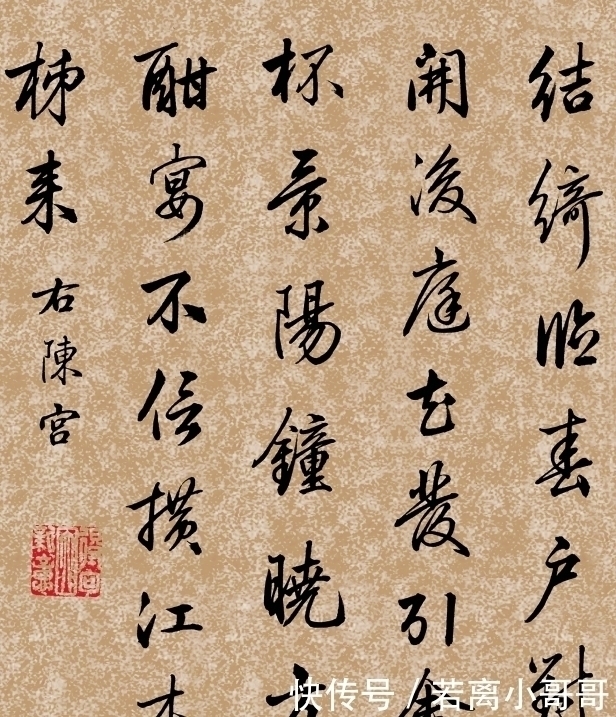 結綺臨春戶對
開後庭花發引
杯景陽鐘曉
酣宴不信橫江
梯来
右陳宮
快传号 / 若离小哥哥